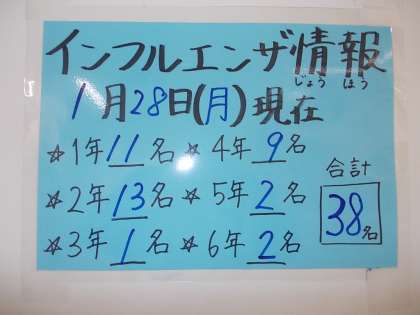 インフルエンザ情報
じょうほう
1月28日(月)現在
☆1年11名 ☆4年9名
合計
☆2年13名 ☆5年2名
38名
☆3年1名 ☆6年2名